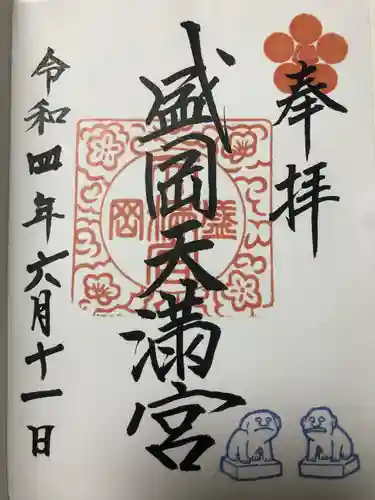 奉拝
盛岡天満宮
令和四年六月十一日